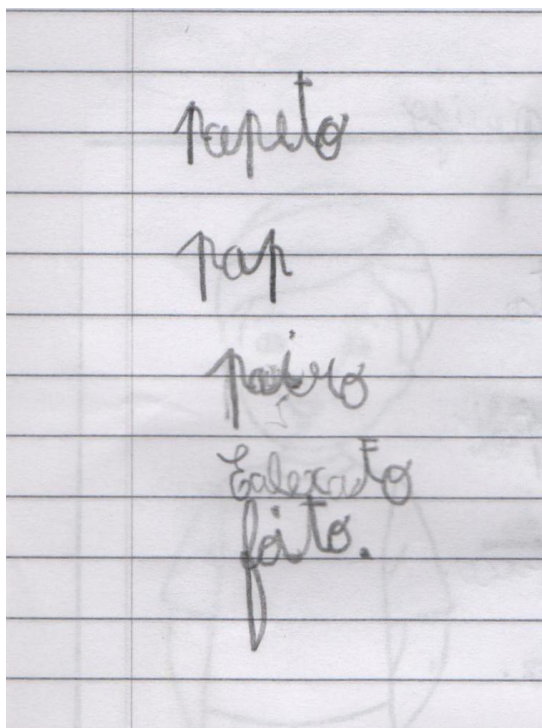 papeto
pap
pairo
Ealexato
foito.